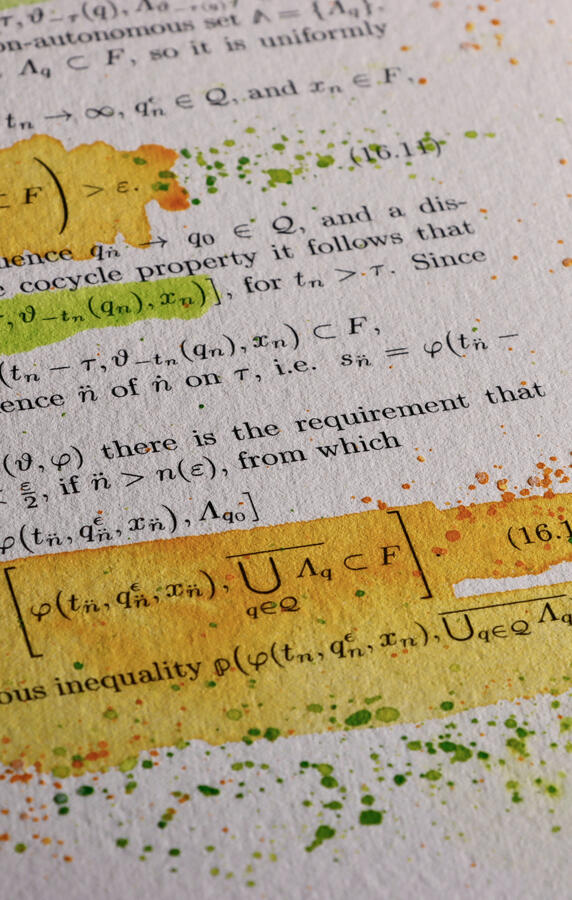 τ, ϑ₋τ(q), Λϑ₋τ(q)
on-autonomous set 𝔸 = {Λq},
Λq ⊂ F, so it is uniformly
tn → ∞, qᵋn ∈ Q, and xn ∈ F,
(16.14)
⊂ F) > ε.
uence qn̈ → q0 ∈ Q, and a dis-
e cocycle property it follows that
, ϑ₋tn(qn), xn)], for tn > τ. Since
(tn − τ, ϑ₋tn(qn), xn) ⊂ F,
ence n̈ of ṅ on τ, i.e. sn̈ = φ(tn̈ −
(ϑ, φ) there is the requirement that
< ε/2, if n̈ > n(ε), from which
φ(tn̈, qᵋn̈, xn̈), Λq0]
[φ(tn̈, qᵋn̈, xn̈), ⋃q∈Q Λq ⊂ F]. (16.1
ous inequality p(φ(tn, qᵋn, xn), ⋃q∈Q Λq